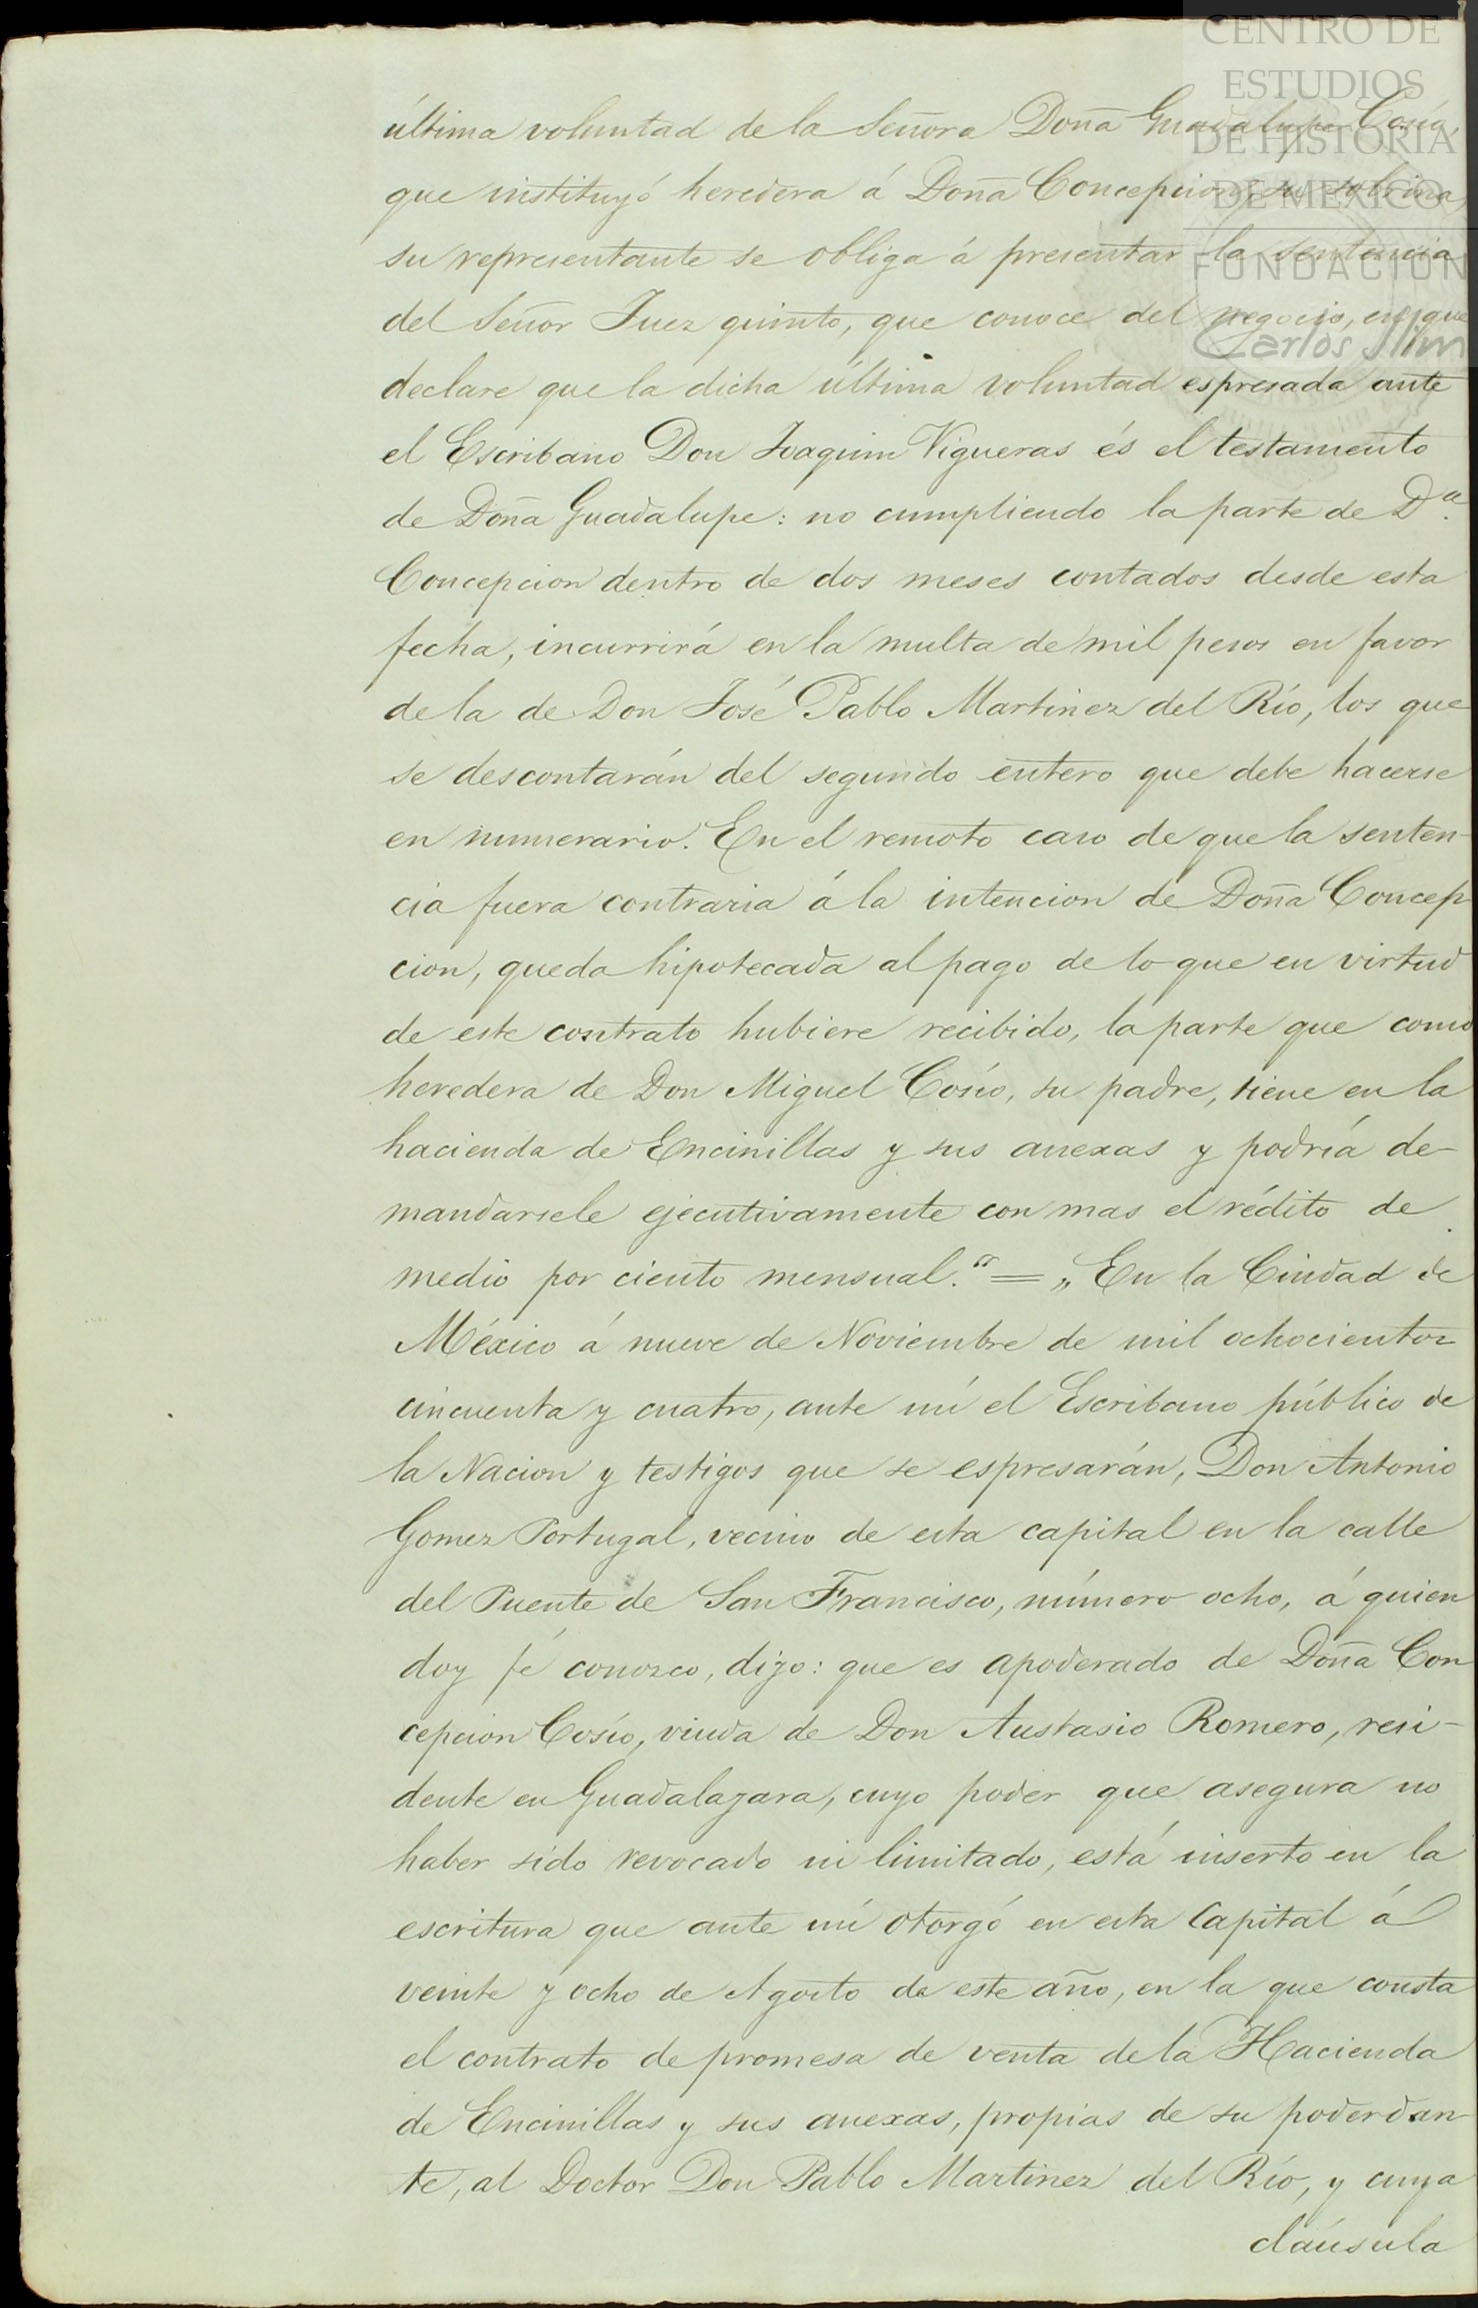 CENTRO DE
ESTUDIOS
DE HISTORIA
DE MEXICO
FUNDACION
Carlos Slim
última voluntad de la Señora Doña Guadalupe Cosío,
que instituyó heredera á Doña Concepcion, su sobrina,
su representante se obliga á presentar la sentencia
del Señor Juez quinto, que conoce del negocio, en que
declare que la dicha última voluntad espresada ante
el Escribano Don Joaquim Vigueras és el testamento
de Doña Guadalupe: no cumpliendo la parte de D.ª
Concepcion dentro de dos meses contados desde esta
fecha, incurrirá en la multa de mil pesos en favor
de la de Don José Pablo Martinez del Río, los que
se descontarán del segundo entero que debe hacerse
en numerario. En el remoto caso de que la senten-
cia fuera contraria á la intencion de Doña Concep-
cion, queda hipotecada al pago de lo que en virtud
de este contrato hubiere recibido, la parte que como
heredera de Don Miguel Cosío, su padre, tiene en la
hacienda de Encinillas y sus anexas y podría de-
mandarsele ejecutivamente con mas el rédito de
medio por ciento mensual." = „En la Ciudad de
México á nueve de Noviembre de mil ochocientos
cincuenta y cuatro, ante mí el Escribano público de
la Nacion y testigos que se espresarán, Don Antonio
Gomez Portugal, vecino de esta capital en la calle
del Puente de San Francisco, número ocho, á quien
doy fé conozco, dijo: que es apoderado de Doña Con
cepcion Cosío, viuda de Don Austasio Romero, resi-
dente en Guadalajara, cuyo poder que asegura no
haber sido revocado ni limitado, está inserto en la
escritura que ante mí otorgó en esta Capital á
veinte y ocho de Agosto de este año, en la que consta
el contrato de promesa de venta de la Hacienda
de Encinillas y sus anexas, propias de su poderdan-
te, al Doctor Don Pablo Martinez del Río, y cuya
cláusula